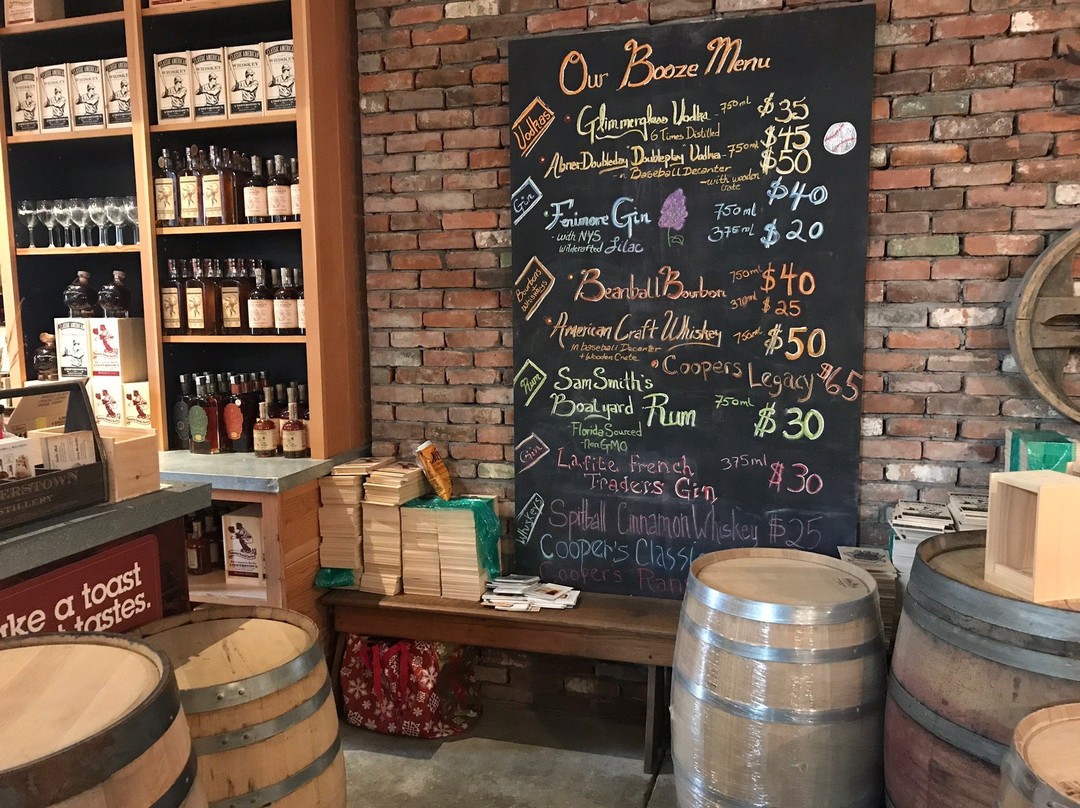 Our Booze Menu
Vodkas
Glimmerglass Vodka - 750ml $35
6 Times Distilled
$45
Abner Doubleday "Doubleplay" Vodka - 750ml $50
Baseball Decanter
- with wooden
Crate
Gin
Fenimore Gin 750ml $40
- with NYS 375ml $20
Wildcrafted Lilac
Bourbons &
Whiskeys
Beanball Bourbon 750ml $40
$25
American Craft Whiskey 750ml $50
in baseball Decanter
+ Wooden Crate
Coopers Legacy $65
Rum
Sam Smith's
Boatyard Rum 750ml $30
- Florida Sourced
- Non GMO
Gin
Lafite French 375ml $30
Traders Gin
Whiskeys
Spitball Cinnamon Whiskey $25
Cooper's Classi
Cooper's Ran
CLASSIC AMERICAN
WHISKEY
CLASSIC AMERICAN
WHISKEY
CLASSIC AMERICAN
WHISKEY
ERSTOWN
DISTILLERY
ke a toast
tastes.